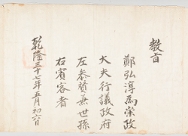 教旨
鄭弘淳爲崇政
大夫行議政府
左參贊兼世孫
右賓客者
乾隆三十七年五月初六日